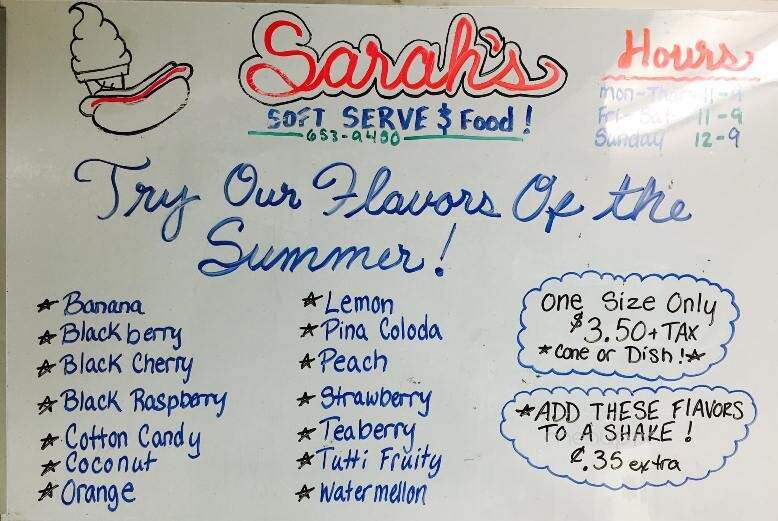 Sarah's
SOFT SERVE & Food!
653-9490
Hours
Mon-Thur 11-9
Fri-Sat 11-9
Sunday 12-9
Try Our Flavors Of the
Summer!
Banana
Blackberry
Black Cherry
Black Raspberry
Cotton Candy
Coconut
Orange
Lemon
Pina Coloda
Peach
Strawberry
Teaberry
Tutti Fruity
Watermellon
One Size Only
$3.50+TAX
*Cone or Dish!*
*ADD THESE FlAVORS
TO A SHAKE!
¢.35 extra